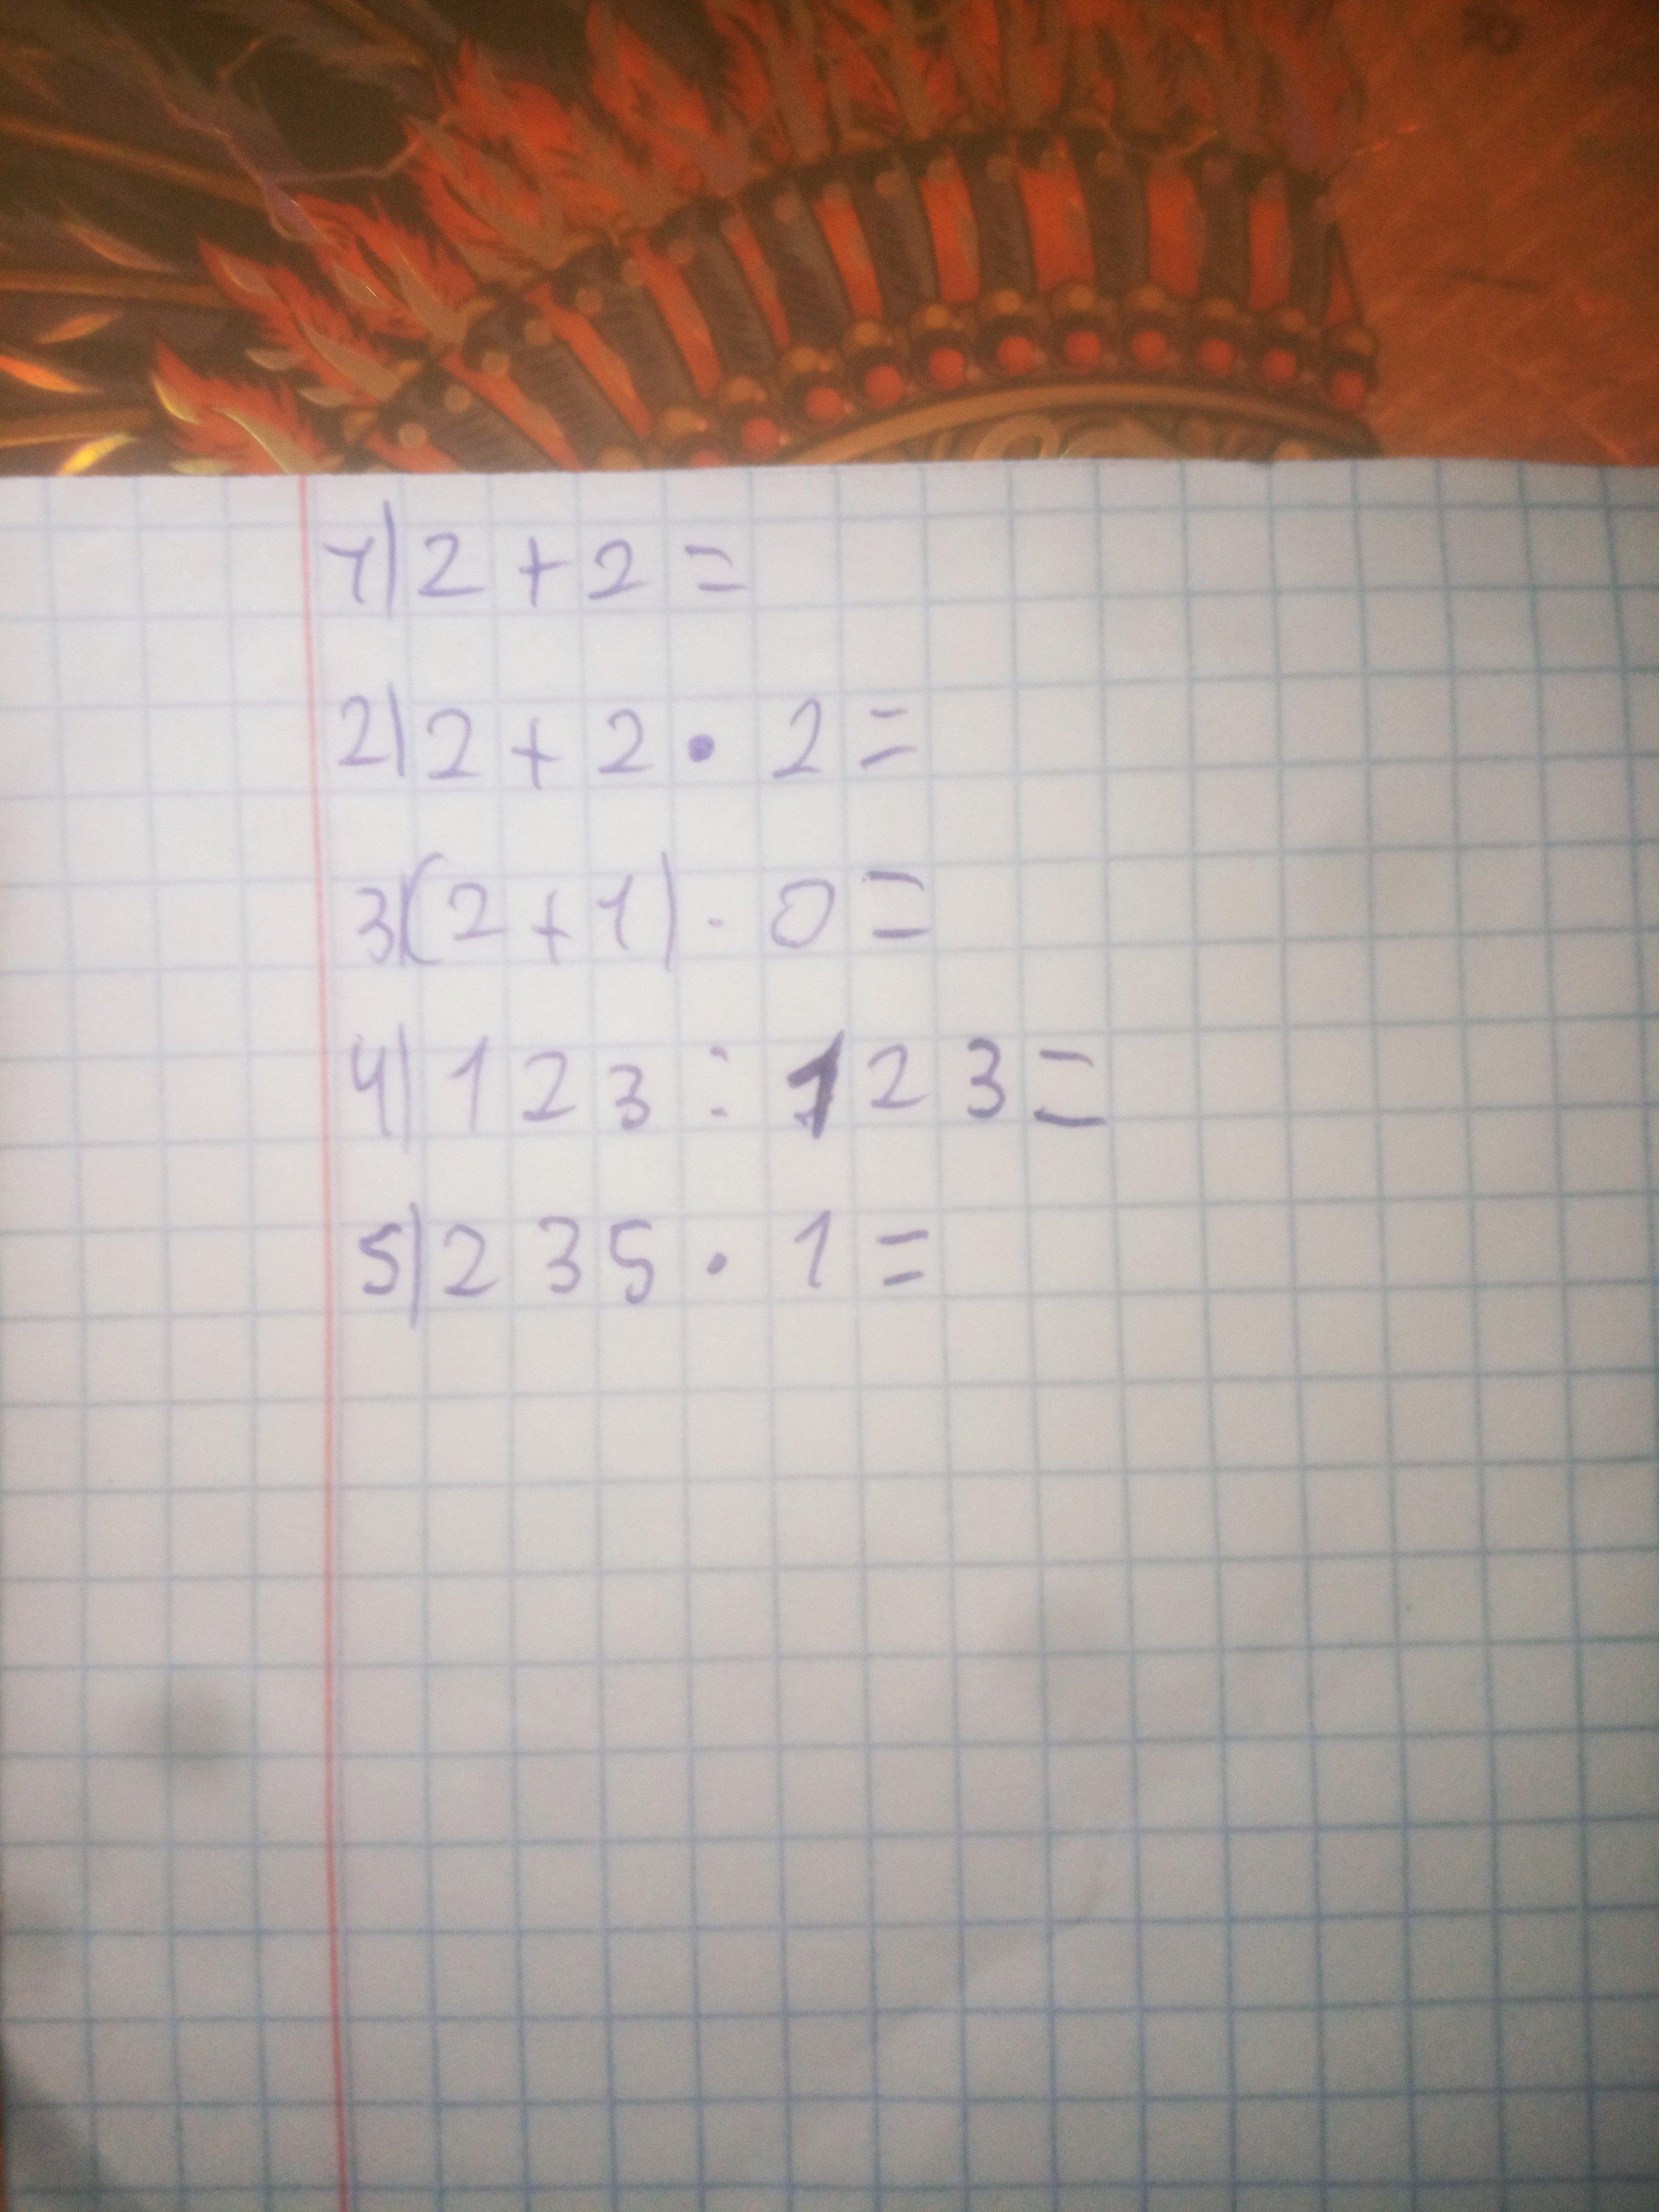 1) 2 + 2 =
2) 2 + 2 • 2 =
3) (2 + 1) · 0 =
4) 123 : 123 =
5) 235 • 1 =